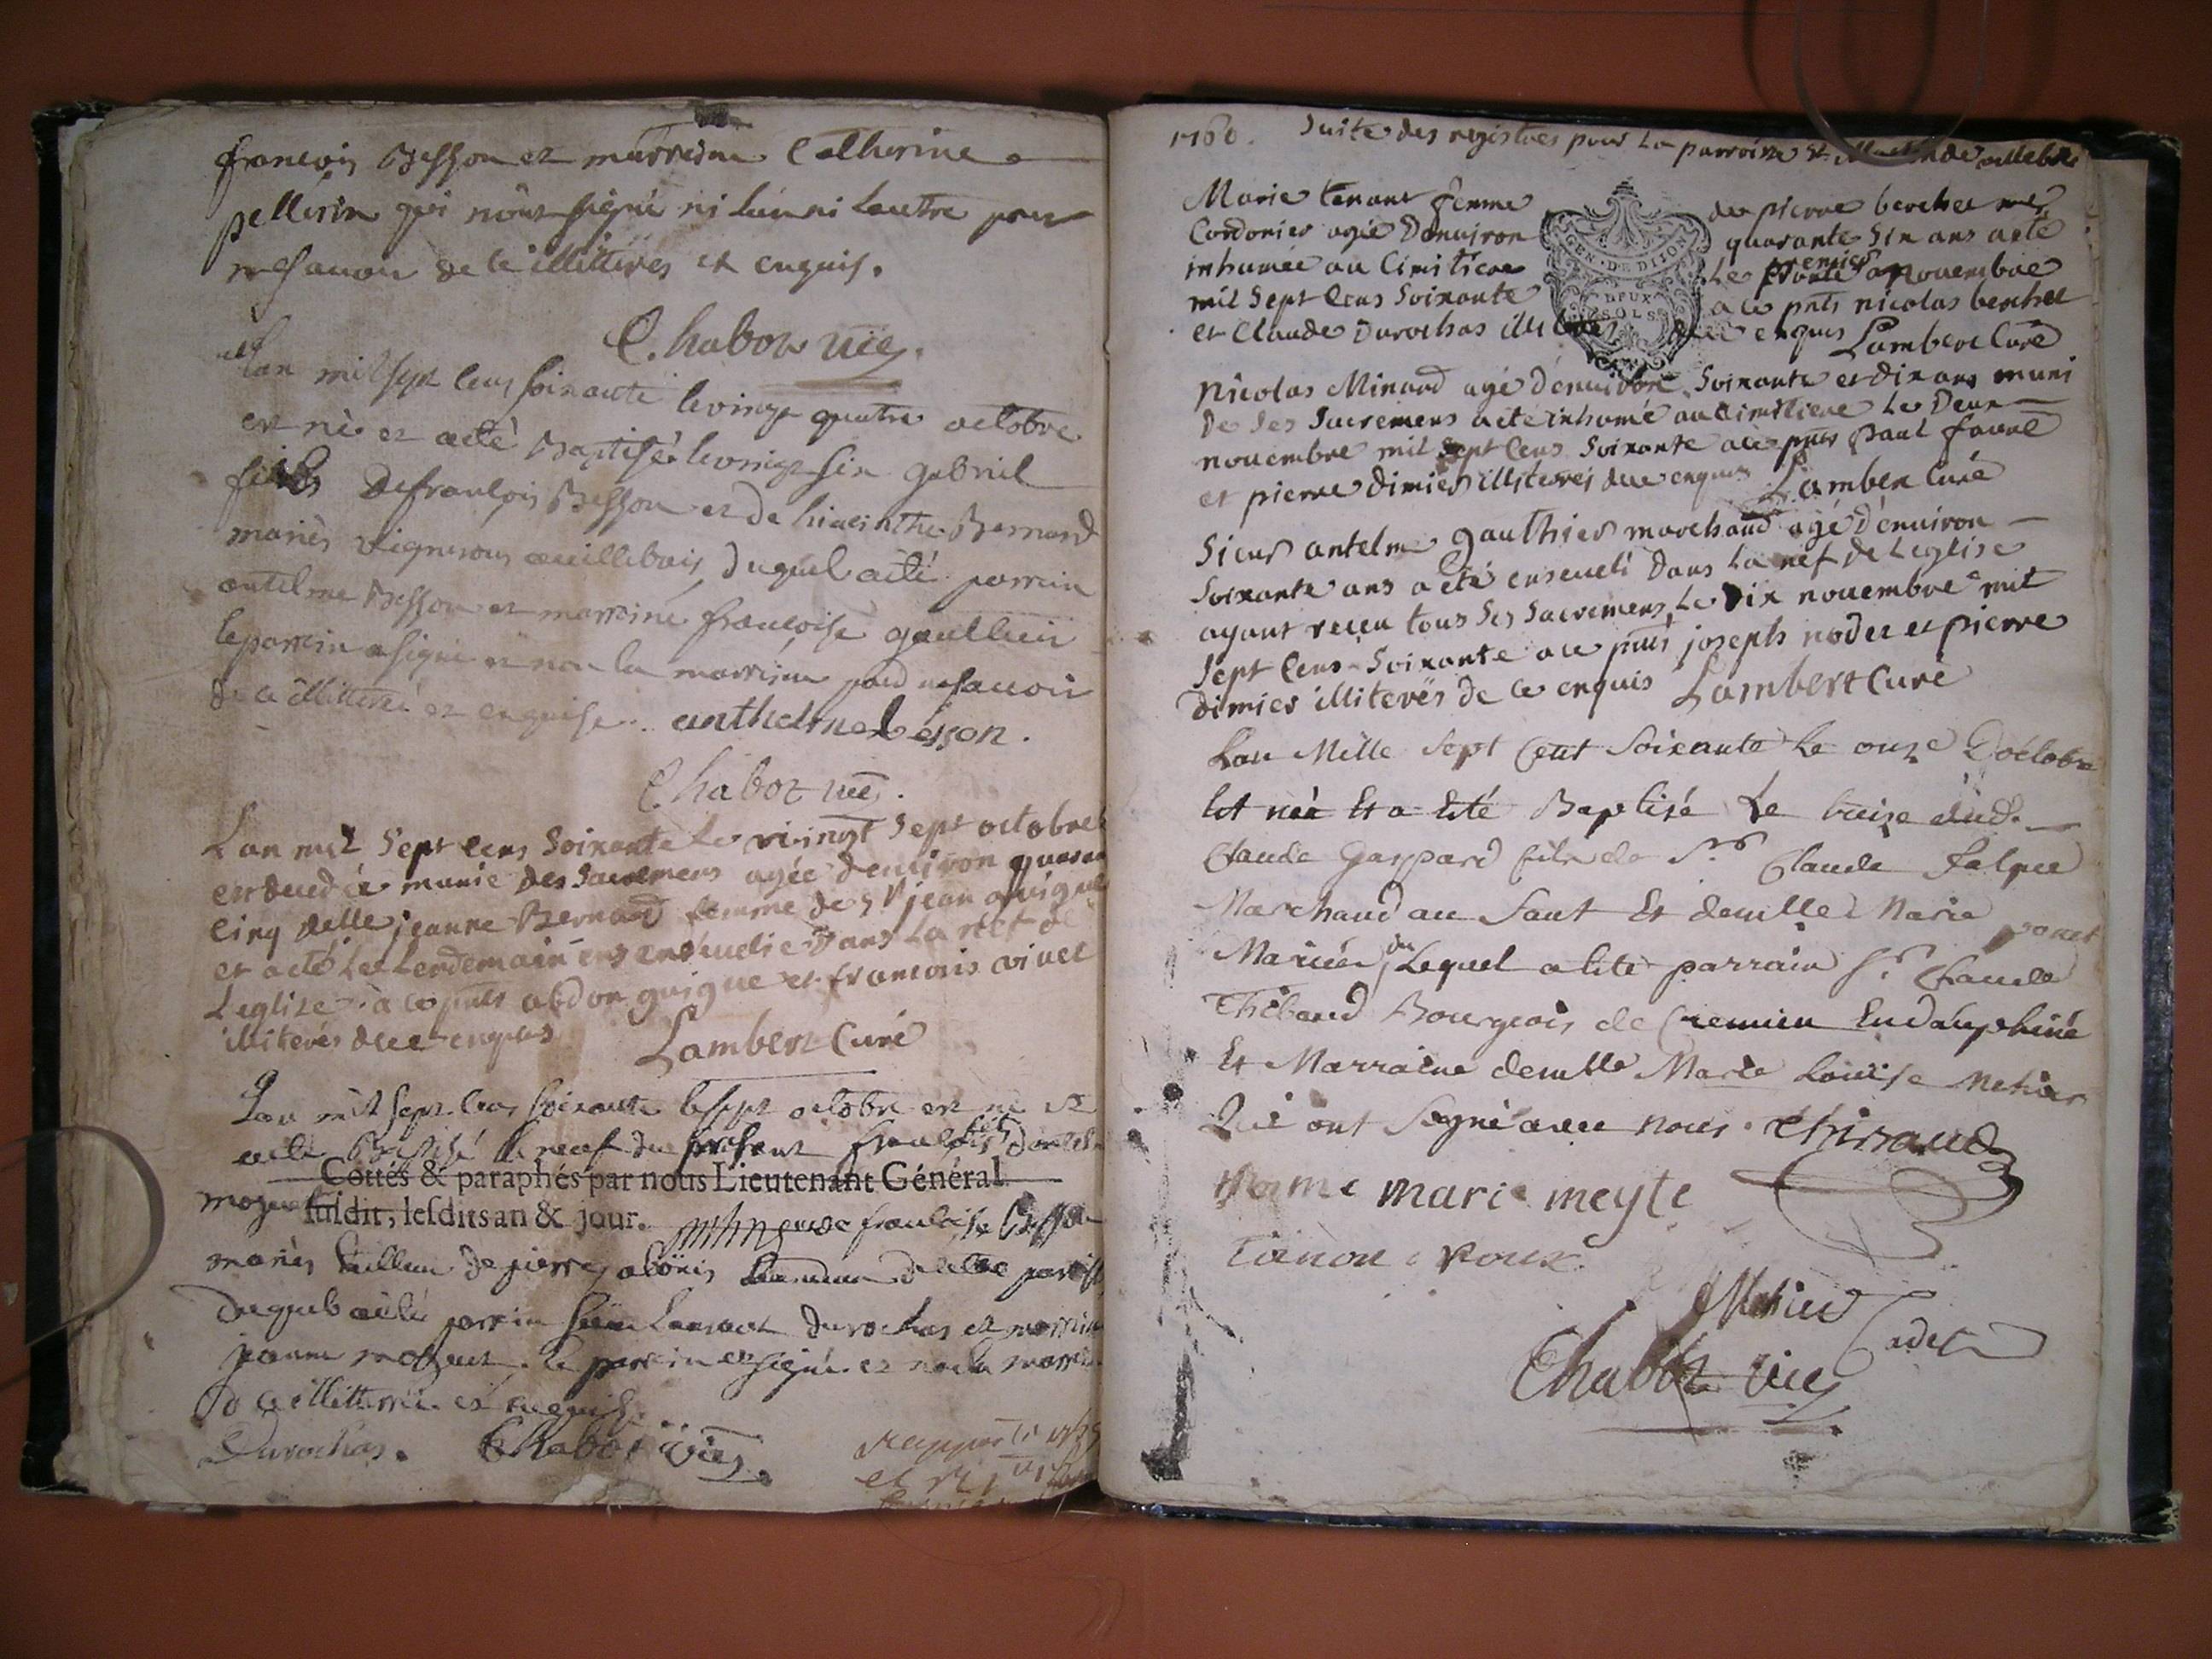 francois Besson et marreine Catherine
pellerin qui nont signé ni lun ni lautre pour
ne savoir de ce illitteres et enquis.
Chabot vic.
Lan mil sept cens soixante le vingt quatre octobre
est né et a eté Baptisé le vingt six gabriel
fils de francois Besson et de hiacinthe Bernard
mariés vignerons a villebois, duquel a été parrein
antelme Besson et marreine francoise gaultier
le parrein a signé et non la marreine pour ne savoir
de ce illitteré et enquise. anthelme besson.
Chabot vic.
Lan mil Sept cens Soixante Le vingt Sept octobre
est decedée munie des Sacremens agée denviron quaran
cinq delle jeanne Bernard femme de Sr jean guigue
et a eté Le Lendemain ensevelie Dans La nef de
Leglise à ce pnts abdon guigue et francois vivet
illiterés de ce enquis Lambert Curé
Lan mil sept cens soixante le sept octobre est né et
a été Baptisé le neuf du présent francois fils dantelme
Cottés & paraphés par nous Lieutenant Général
susdit, lesdits an & jour.
mariés de pierre
duquel a été parrein Durochas et marreine
jeanne le parrein a signé et non la marreine
de ce illitterée et enquise
Durochas. Chabot vic.
1760. Suite des registres pour La parroisse St Martin de villebois
Marie tenant femme de pierre berchet me
Cordonier agée Denviron quarante Six ans a eté
inhumée au Cimitiere Le premier novembre
mil Sept Cens Soixante a ce pnts nicolas berchet
et Claude Durochas illiterés de ce enquis Lambert Curé
Nicolas Minand agé d'environ Soixante et dix ans muni
De Ses Sacremens a eté inhumé au Cimitiere Le Deux
novembre mil Sept Cens Soixante a ce pnts paul favre
et pierre dimier illiterés de ce enquis Lambert Curé
Sieur antelme gauthier marchand agé d'environ
Soixante ans a été enseveli Dans La nef de Leglise
ayant reçeu tous Ses Sacremens Le Dix novembre mil
Sept Cens Soixante a ce pnts joseph nodet et pierre
Dimier illiterés de ce enquis Lambert Curé
Lan Mille Sept Cent Soixante Le onze Doctobre
Est née Et a Eté Baptisé Le treize dud.
Claude Gaspard fils de Sr Claude Falque
Marchand au Saut Et demlle Marie ponet
Mariés, du Lequel a Eté parrain Sr Claude
Thibaud Bourgeois de Cremieu En dauphiné
Et Marraine demlle Marie Louise Metier
Qui ont Signé avec nous.
marie meyte
roux
Metier Cadet
Chabot vic.